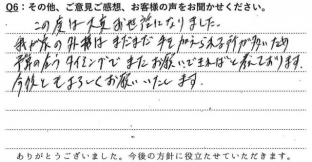 Q6：その他、ご意見ご感想、お客様の声をお聞かせください。
この度は大変お世話になりました。
我が家の外構はまだまだ手を加えられる所が多いため
予算の合うタイミングでまたお願いできればと考えております。
今後ともよろしくお願いいたします。
ありがとうございました。今後の方針に役立たせていただきます。